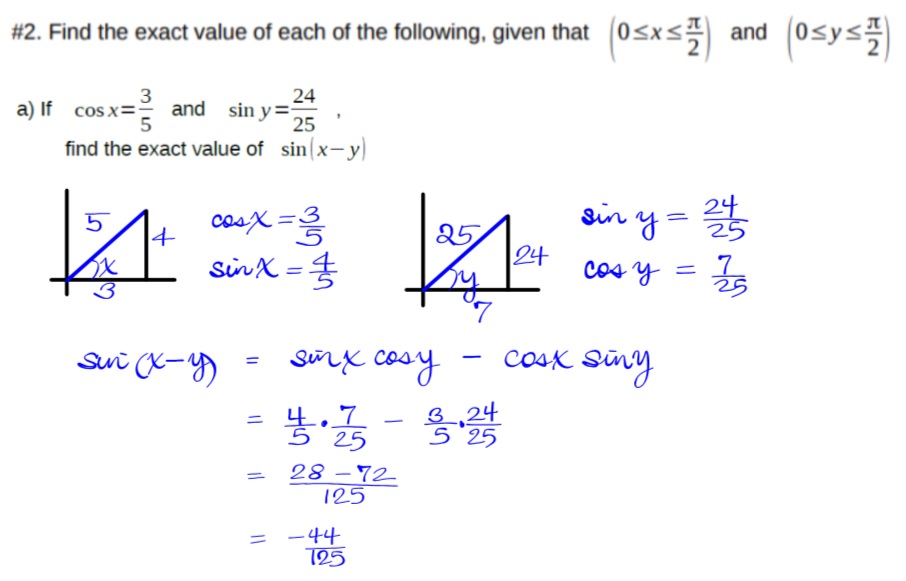 #2. Find the exact value of each of the following, given that (0≤x≤π/2) and (0≤y≤π/2)
a) If cos x=3/5 and sin y=24/25 ,
find the exact value of sin(x−y)
5 4 x 3
cosx = 3/5
sinx = 4/5
25 24 y 7
sin y = 24/25
cos y = 7/25
sin (x−y) = sinx cosy − cosx siny
= 4/5 · 7/25 − 3/5 · 24/25
= 28 − 72/125
= −44/125